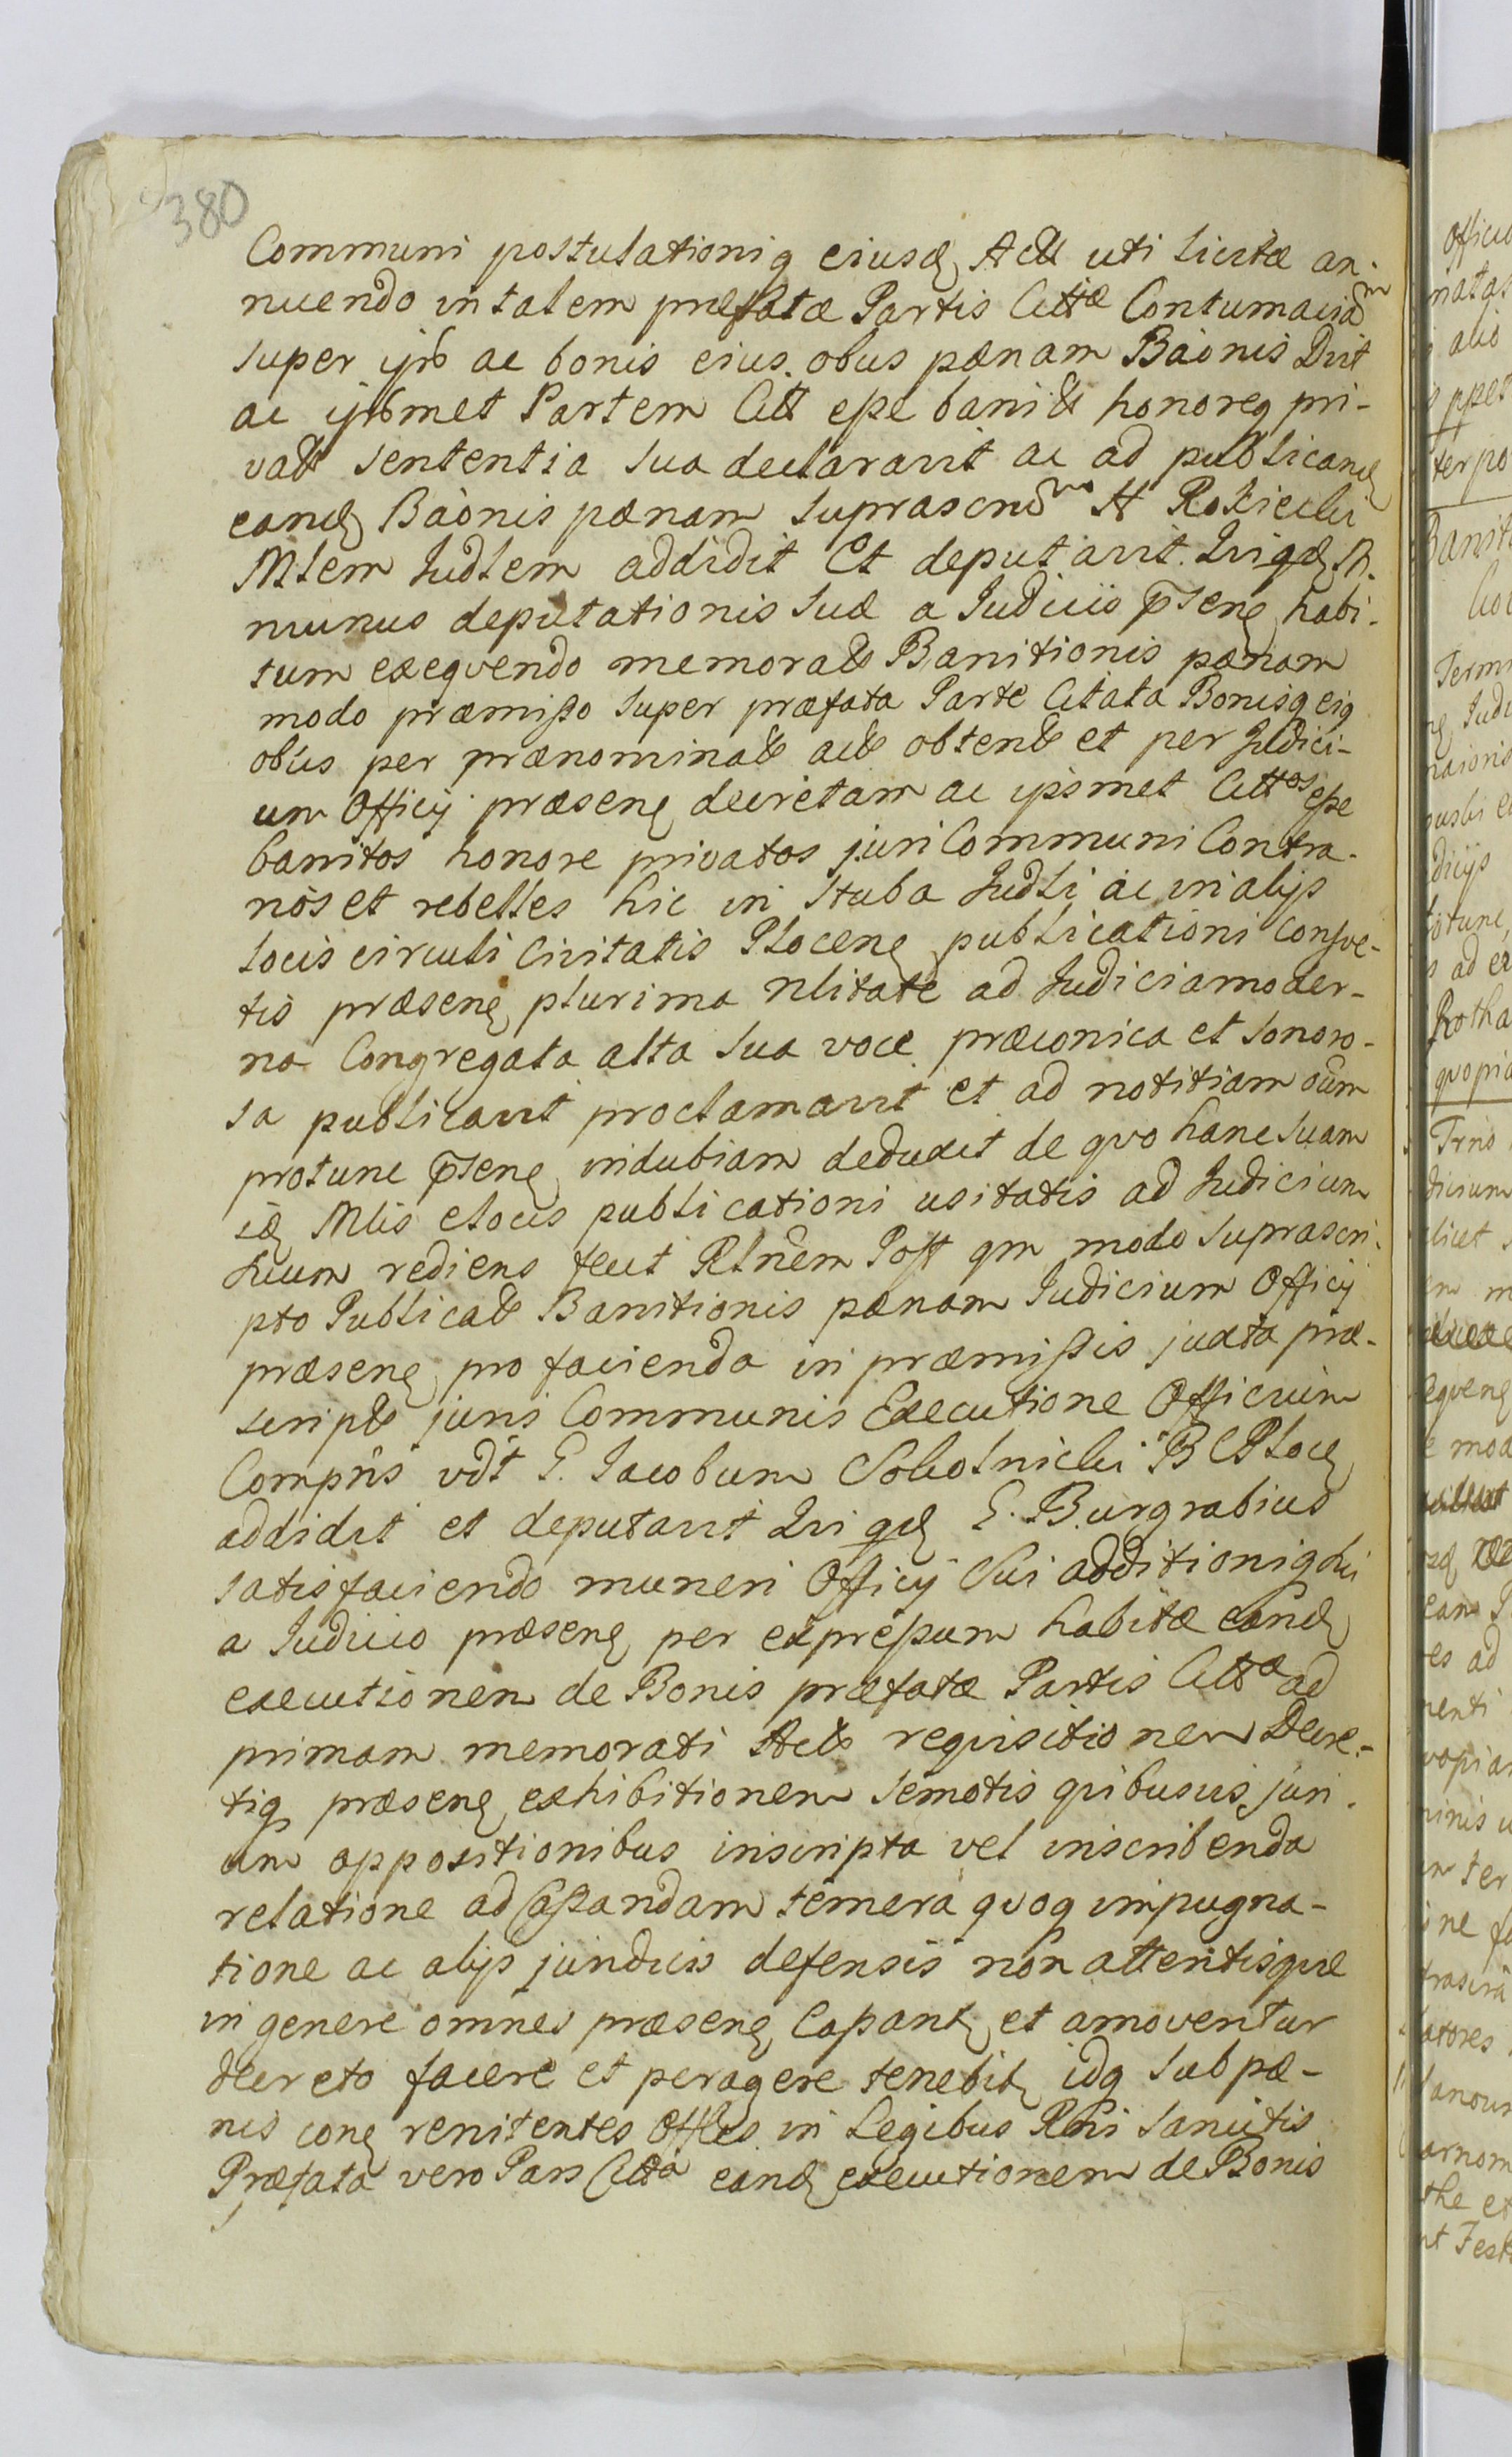 380
Communi postulationiq eiusd Actt uti licitæ an-
nuendo in talem præfatæ Partis Cittæ Contumaciam
super ips ac bonis eius obus pænam Baonis Dxit
ac ipsmet Partem Citt esse banitt honoreq pri-
vatt sententia sua declaravit ac ad publicand
eand Baonis pænam suprascrm H Rokicki
Mlem Judlem addidit Et deputavit. Qui qd M.
munus deputationis suæ a Judicio p̄sens habi-
tum exeqvendo memoratt Banitionis pænam
modo præmisso super præfata Parte Citata Bonisq eiq
obus per prænominatt actt obtentt et per Judici-
um Officij præsens decretam ac ipsmet Cittos esse
banitos honore privatos juri Communi Contra-
nos et rebelles hic in Stuba Judli ac in alijs
locis circuli Civitatis Plocens publicationi consve-
tis præsens plurima Nlitate ad Judicia moder-
na Congregata alta sua voce præconica et sonoro-
sa publicavit proclamavit et ad notitiam oum
protunc p̄sens indubiam deduxit de qvo hanc suam
id Mlis e locis publicationi usitatis ad Judicium
huum rediens fecit Rlnem Post qm modo suprascri-
pto Publicatt Banitionis pænam Judicium Officij
præsens pro facienda in præmissis juxta præ-
scriptt juris Communis Executione Officium
Compns vdt G. Jacobum Sobolnicki B C Ploc
addidit et deputavit Qui qd G. Burgrabius
satisfaciendo muneri Officij Sui additioniq sui
a Judicio præsens per expressum habitæ eand
executionem de Bonis præfatæ Partis Cittæ ad
primam memorati Actt reqvisitionem Decre-
tiq præsens exhibitionem semotis qvibusvis juri-
um oppositionibus inscripta vel inscribenda
relatione ad Cassandam temera qvoq impugna-
tione ac alijs juridicis defensis non attentis qvæ
in genere omnes præsens Cassant et amoventur
decreto facere et peragere tenebit idq sub pæ-
nis cong renitentes Offles in Legibus Rni sancitis
Præfata vero Pars Citta eand executionem de Bonis